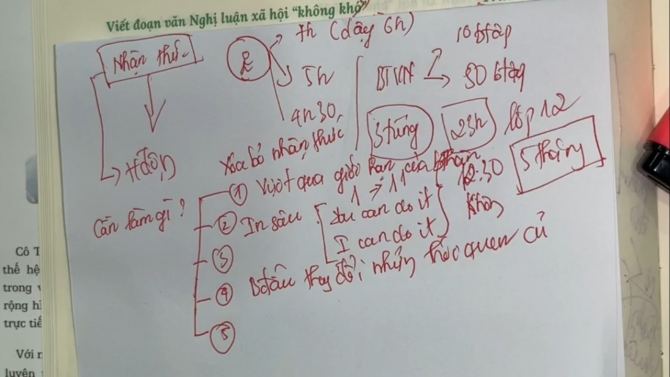 Viết đoạn văn Nghị luận xã hội “không khó”
7h (dậy 6h)
10 btập
Nhận thức
2
5h
BTVN
30 btập
4h30
Hđộn
Xóa bỏ nhận thức
3 tiếng
23h
lớp 12
① Vượt qua giới hạn của bthân
12:30
5 tháng
Cần làm gì?
1 → 11
② In sâu
You can do it
I can do it
không
③
④ Bđầu thay đổi những thói quen cũ
⑤
Cô T
thế hệ
trong v
rộng hì
trực tiế
Với n
luyện